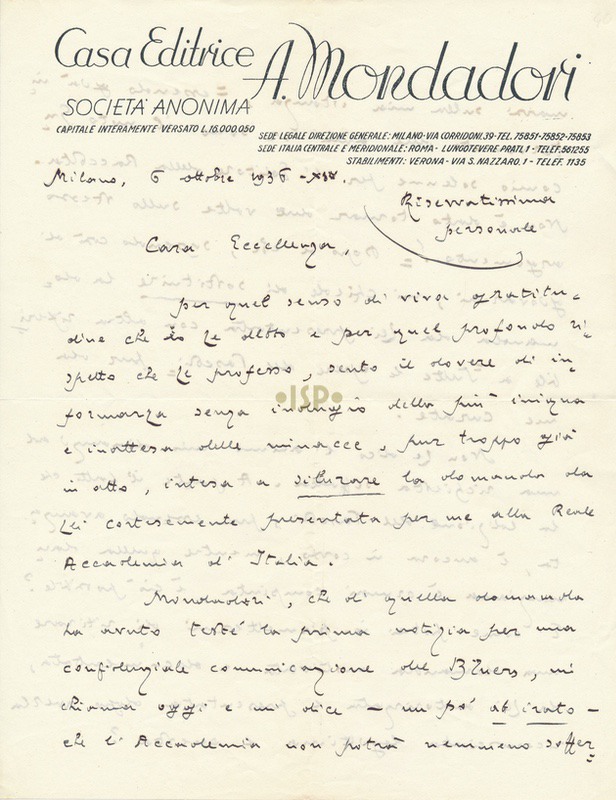 Casa Editrice A. Mondadori
SOCIETÀ ANONIMA
CAPITALE INTERAMENTE VERSATO L.16.000.050
SEDE LEGALE DIREZIONE GENERALE: MILANO-VIA CORRIDONI,39-TEL.75851-75852-75853
SEDE ITALIA CENTRALE E MERIDIONALE: ROMA - LUNGOTEVERE PRATI,1 - TELEF.561255
STABILIMENTI: VERONA - VIA S. NAZZARO, 1 - TELEF. 1135
Milano, 6 ottobre 1936 - XIV.
Riservatissima
personale
Cara Eccellenza,
per quel senso di viva gratitu-
dine che io Le debbo e per quel profondo ri-
spetto che Le professo, sento il dovere di in-
•ISP•
formarLa senza indugio della più iniqua
e inattesa delle minacce, pur troppo già
in atto, intesa a silurare la domanda da
Lei cortesemente presentata per me alla Reale
Accademia d'Italia.
Mondadori, che di quella domanda
ha avuto testé la prima notizia per una
confidenziale comunicazione del, mi
chiama oggi e mi dice - un po' ab irato -
che l'Accademia non potrà nemmeno soffer-